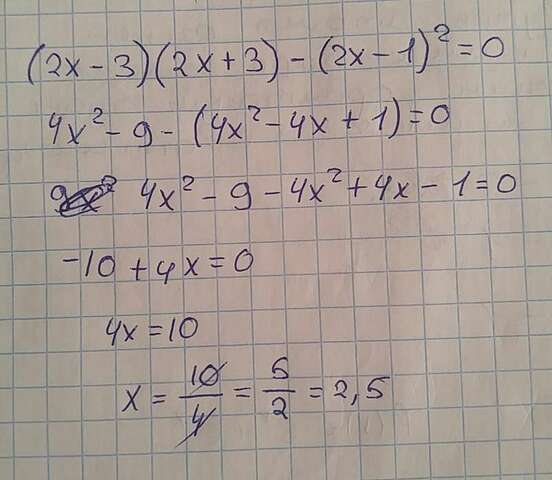 (2x - 3)(2x + 3) - (2x - 1)² = 0
4x² - 9 - (4x² - 4x + 1) = 0
4x² - 9 - 4x² + 4x - 1 = 0
-10 + 4x = 0
4x = 10
x = 10/4 = 5/2 = 2,5